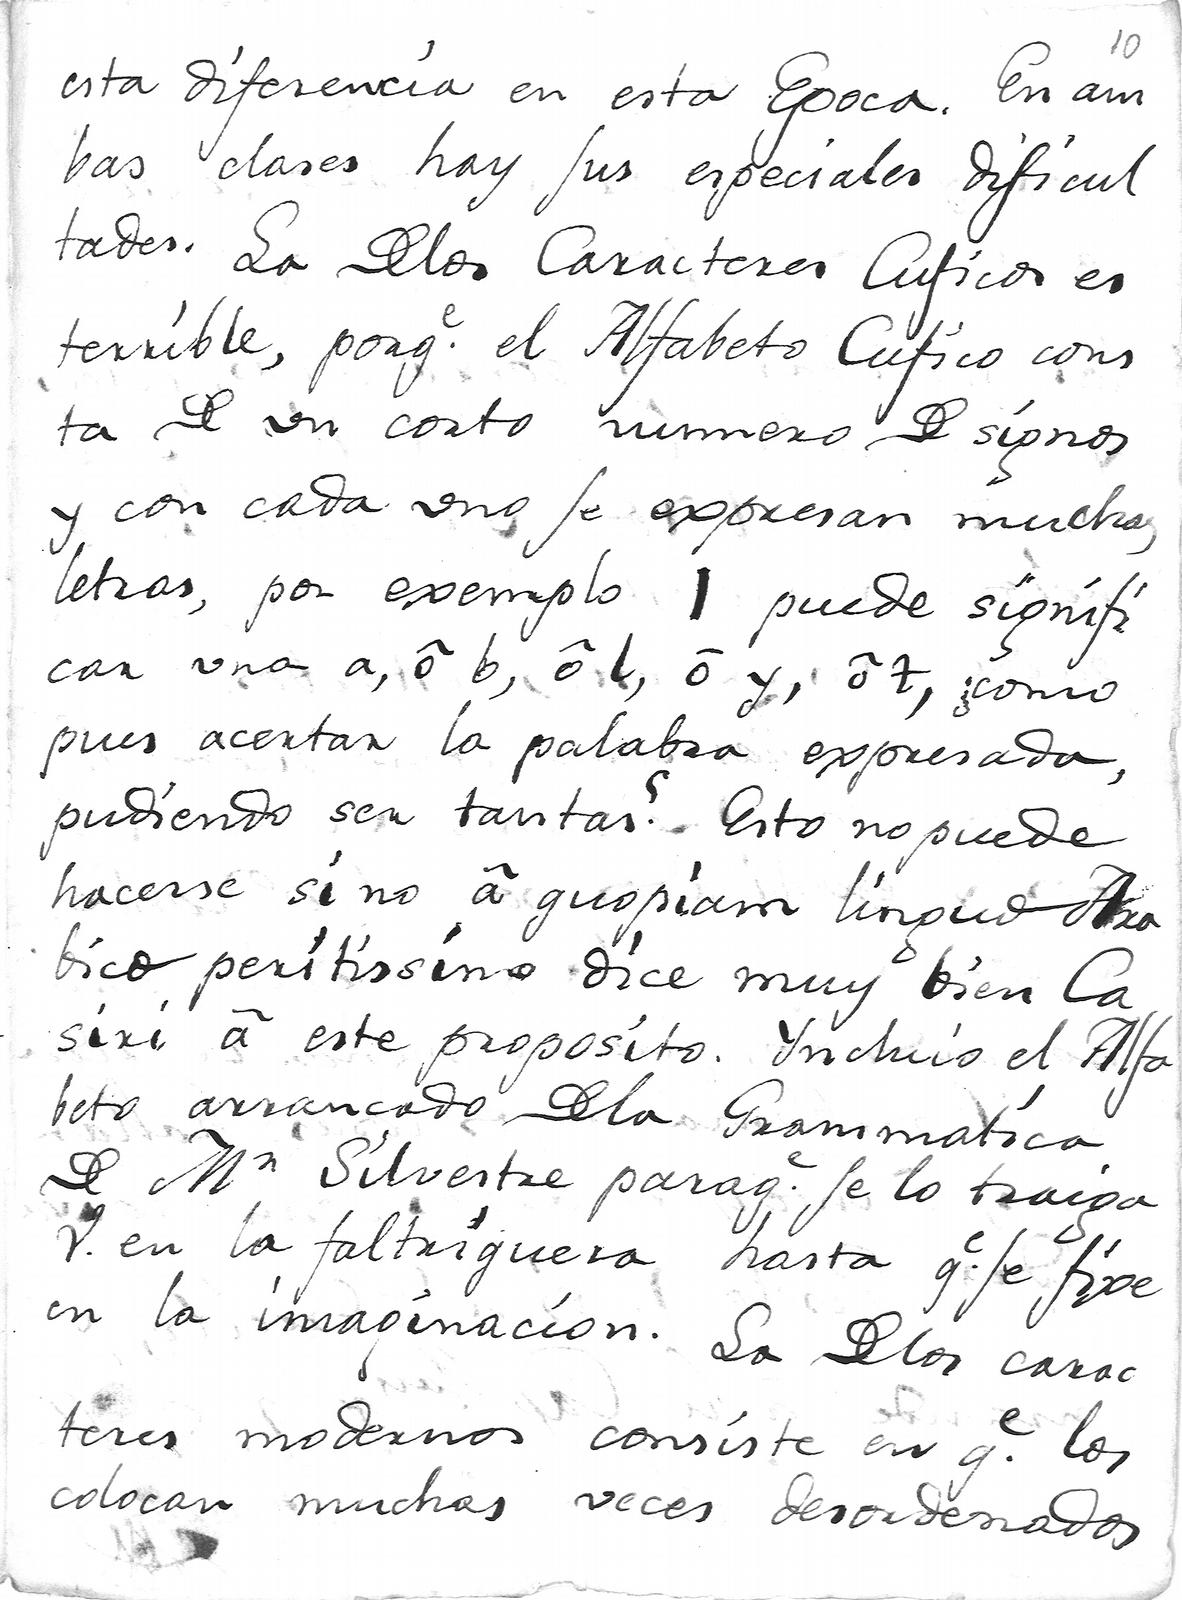 10
esta diferencia en esta Epoca. En am
bas clases hay sus especiales dificul
tades. La Delos Caracteres Cuficos es
terrible, porq.e el Alfabeto Cufico cons
ta De un corto numero De signos
y con cada uno se expresan muchas
letras, por exemplo ا puede signifi
car una a, õ b, õ l, õ y, õ t, ¿como
pues acertar la palabra expresada,
pudiendo ser tantas? Esto no puede
hacerse sino ã quopiam linguæ Ara
bicæ peritissimo dice muy bien Ca
siri ã este proposito. Ynclui el Alfa
beto arrancado Dela Grammatica
De Mn Silvestre paraq.e se lo traiga
V. en la faltriquera hasta q.e se fixe
en la imaginacion. La Delos carac
teres modernos consiste en q.e los
colocan muchas veces desordenados